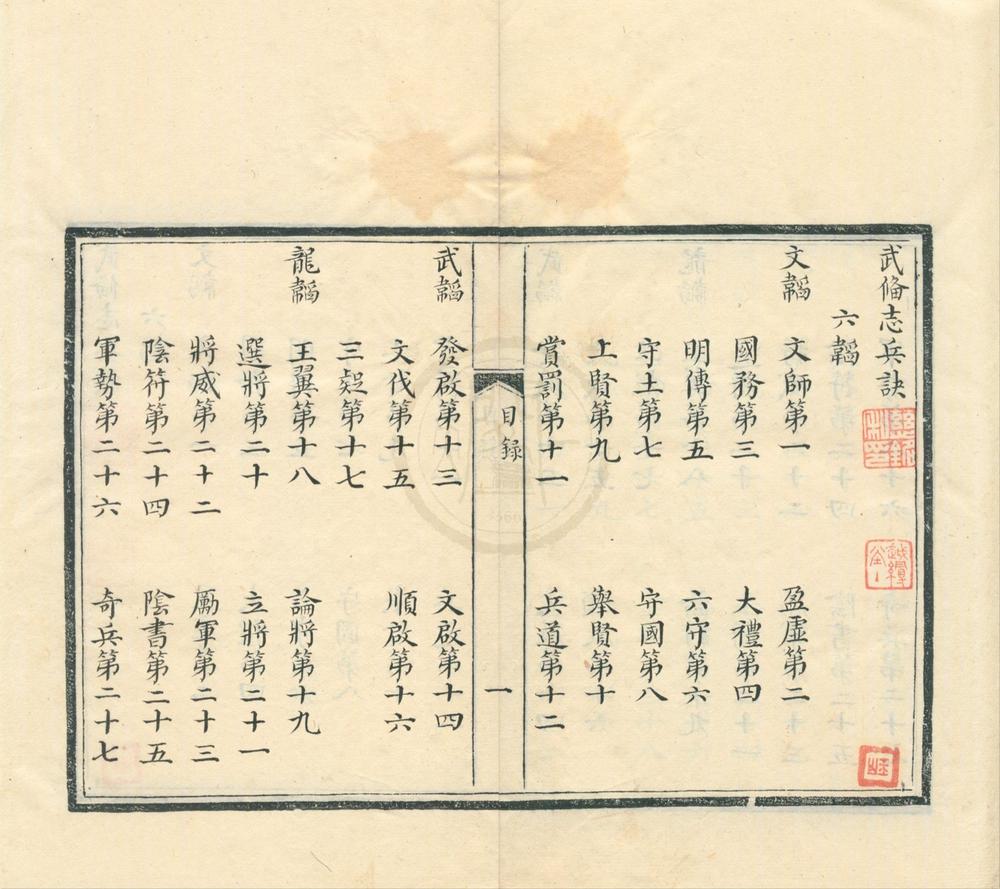 武俻志兵訣
六韜
文韜 文師第一 盈虛第二
國務第三 大禮第四
明傳第五 六守第六
守土第七 守國第八
上賢第九 舉賢第十
賞罰第十一 兵道第十二
目錄 一
武韜 發啟第十三 文啟第十四
文伐第十五 順啟第十六
三疑第十七
龍韜 王翼第十八 論將第十九
選將第二十 立將第二十一
將威第二十二 勵軍第二十三
陰符第二十四 陰書第二十五
軍勢第二十六 奇兵第二十七